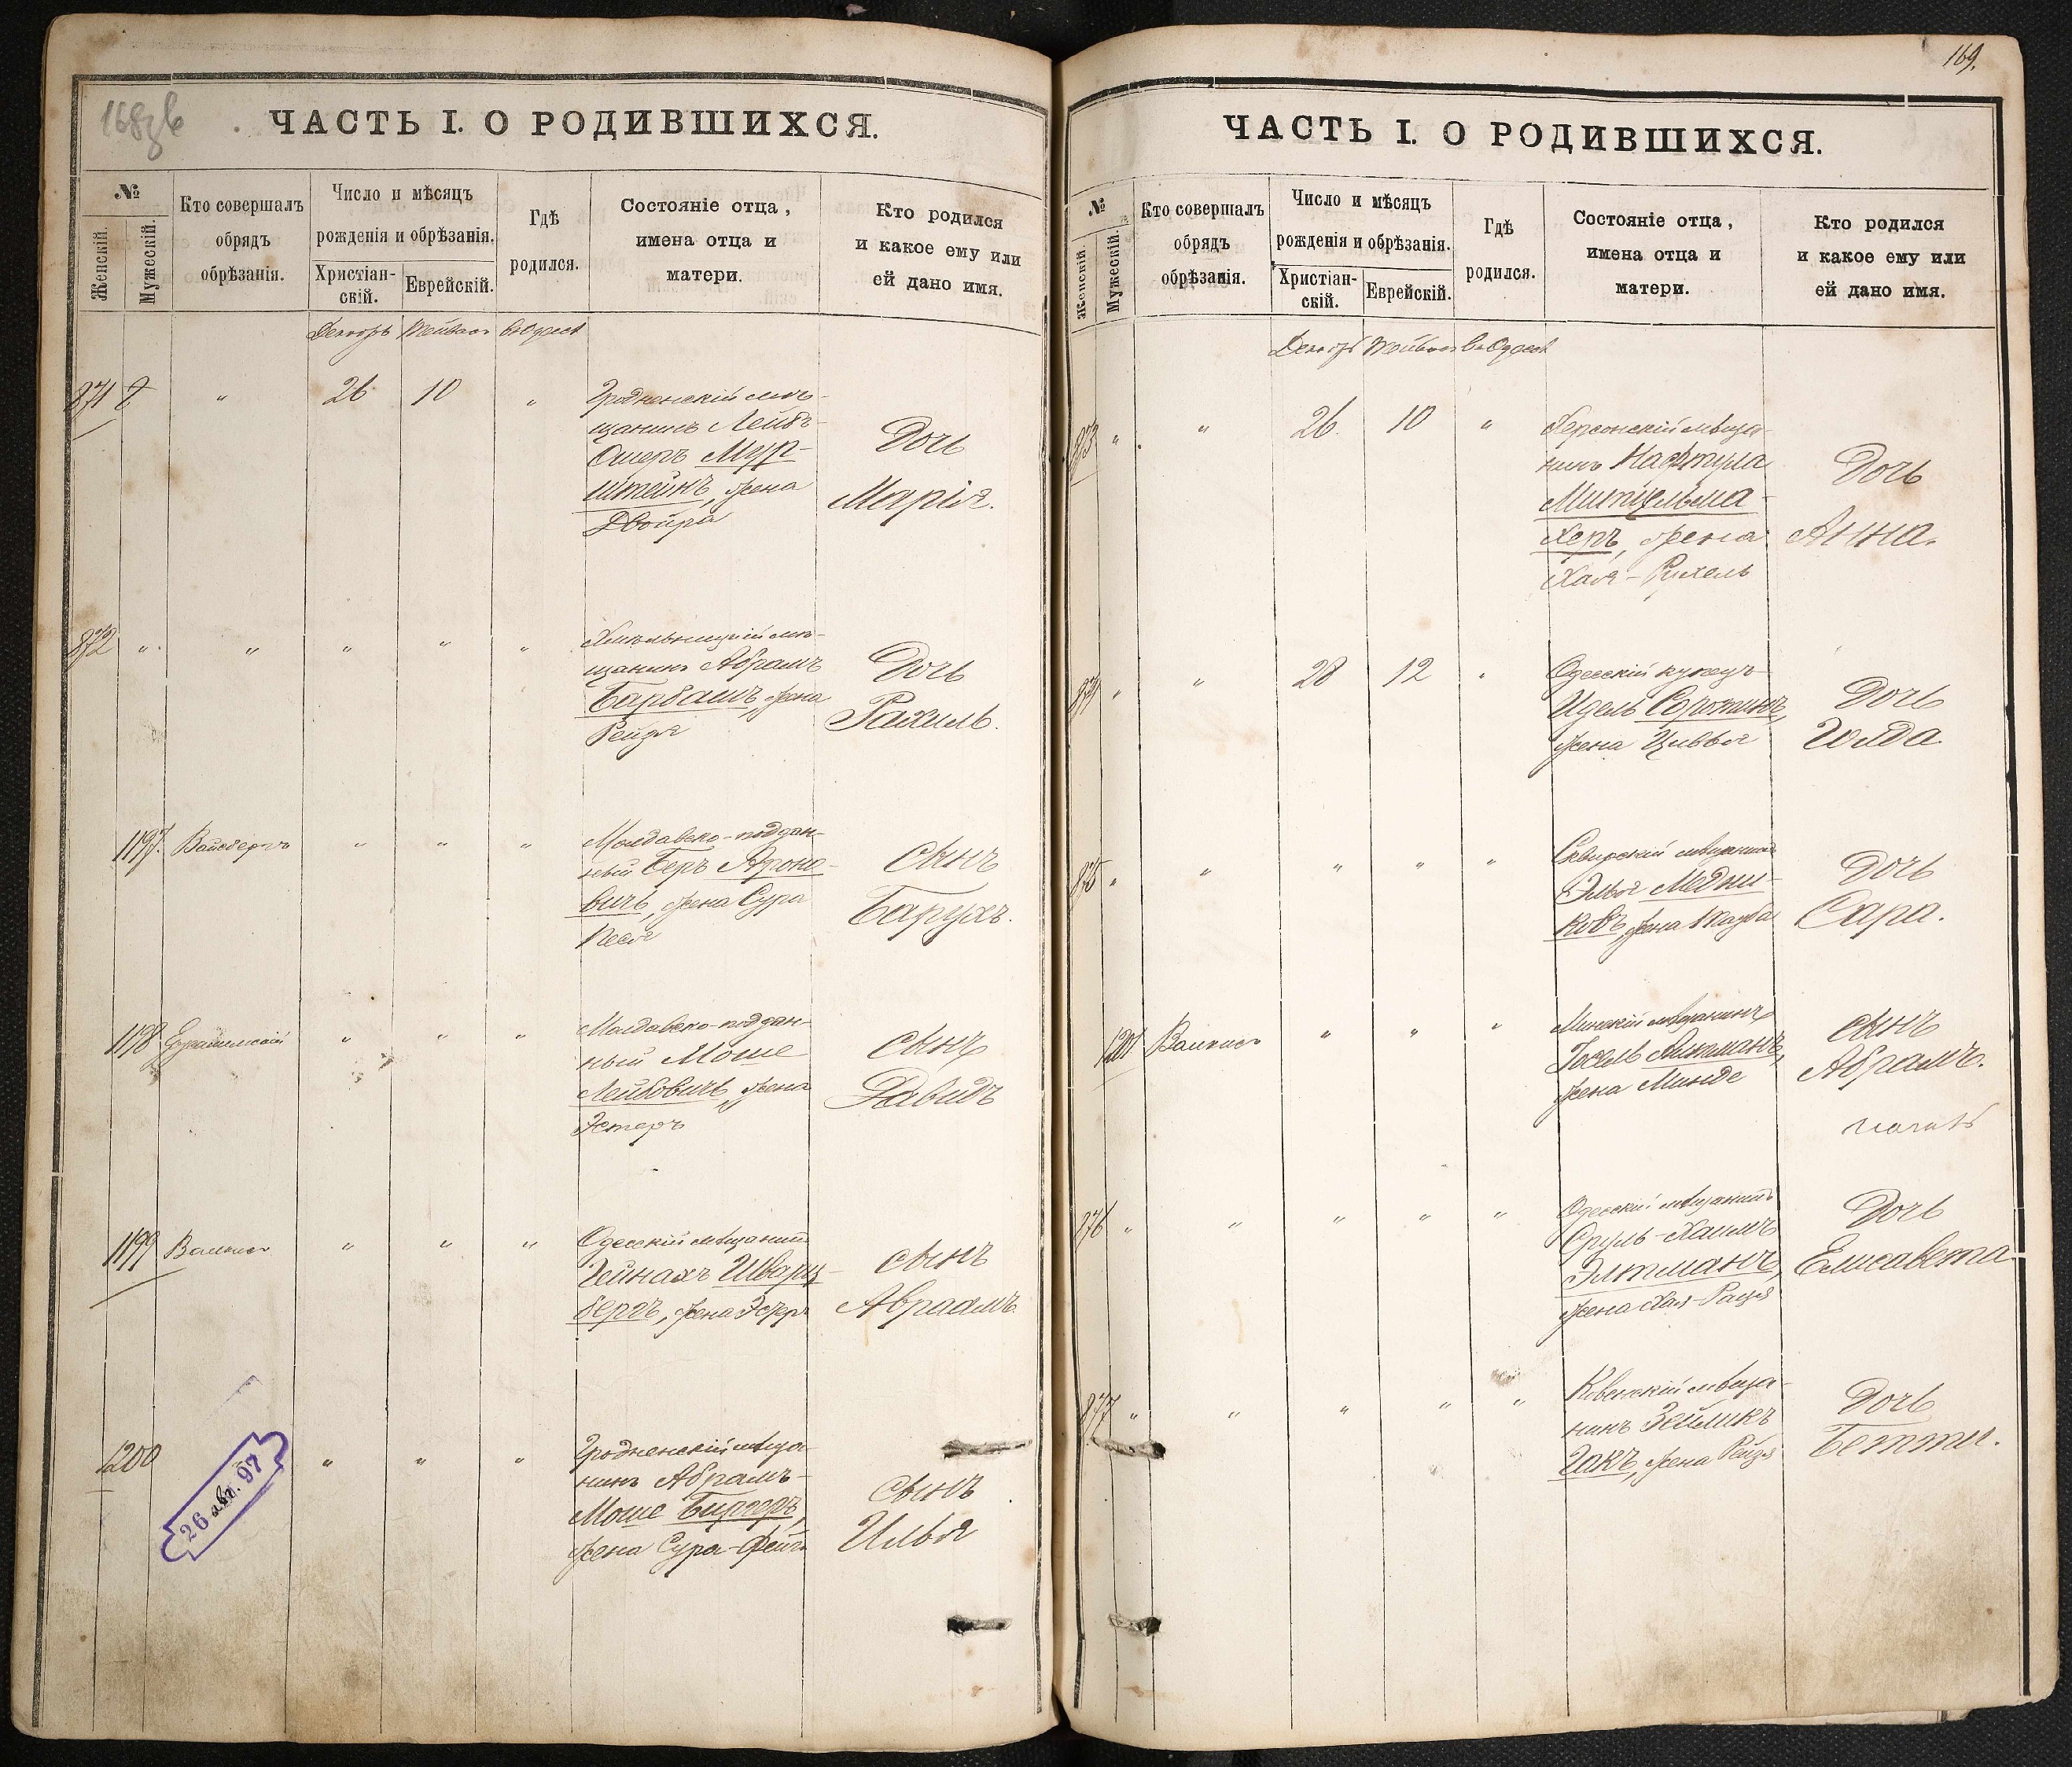 168 зв
ЧАСТЬ I. О РОДИВШИХСЯ.
№
Женскій.
Мужескій.
Кто совершалъ
обрядъ
обрѣзанія.
Число и мѣсяцъ
рожденія и обрѣзанія.
Христіан-
скій.
Еврейскій.
Гдѣ
родился.
Состояніе отца,
имена отца и
матери.
Кто родился
и какое ему или
ей дано имя.
871 " 26 10 "
Гродненскій мѣ-
щанинъ Лейбъ-
Ошеръ Мур-
штейнъ, жена
Двойра
Дочь
Марія.
872 " " " " "
щанинъ Абрамъ
Барбашъ, жена
Рейзя
Дочь
Рахиль.
1197. Вайсбергъ " " "
Молдавско-поддан-
ный Беръ Ароно-
вичъ, жена Сура
Песя
Сынъ
Барухъ.
1198 " " "
Молдавско-поддан-
ный Моше
Лейбовичъ, жена
Эстеръ
Сынъ
Давидъ
1199 " " "
Одесскій мѣщанинъ
Гейнахъ Шварц-
бергъ, жена Эстеръ
Сынъ
Авраамъ.
1200 " " "
26 авг. 97
Гродненскій мѣща-
нинъ Абрамъ-
Моше Биргеръ,
жена Сура-Фейга
Сынъ
Илья
169.
ЧАСТЬ I. О РОДИВШИХСЯ.
№
Женскій.
Мужескій.
Кто совершалъ
обрядъ
обрѣзанія.
Число и мѣсяцъ
рожденія и обрѣзанія.
Христіан-
скій.
Еврейскій.
Гдѣ
родился.
Состояніе отца,
имена отца и
матери.
Кто родился
и какое ему или
ей дано имя.
873 " " 26. 10 "
Херсонскій мѣща-
нинъ Нафтула
Митѣльма-
херъ, жена
Хая-Рухель
Дочь
Анна.
874 " " 28 12 "
Одесскій купецъ
Идель Сорокинъ,
жена Цивья
Дочь
Голда.
875 " " " " "
Сквирскій мѣщанинъ
Элья Медни-
ковъ, жена Тауба
Дочь
Сара.
1201 " " "
Минскій мѣщанинъ
Іосель Литманъ,
жена Минде
Сынъ
Абрамъ.
876 " " " " "
Одесскій мѣщанинъ
Сруль-Хаимъ
Элтманъ,
жена Хая-Рация
Дочь
Елисавета.
877 " " " " "
Ковенскій мѣща-
нинъ Зейликъ
Гакъ, жена Рейзя
Дочь
Бетти.